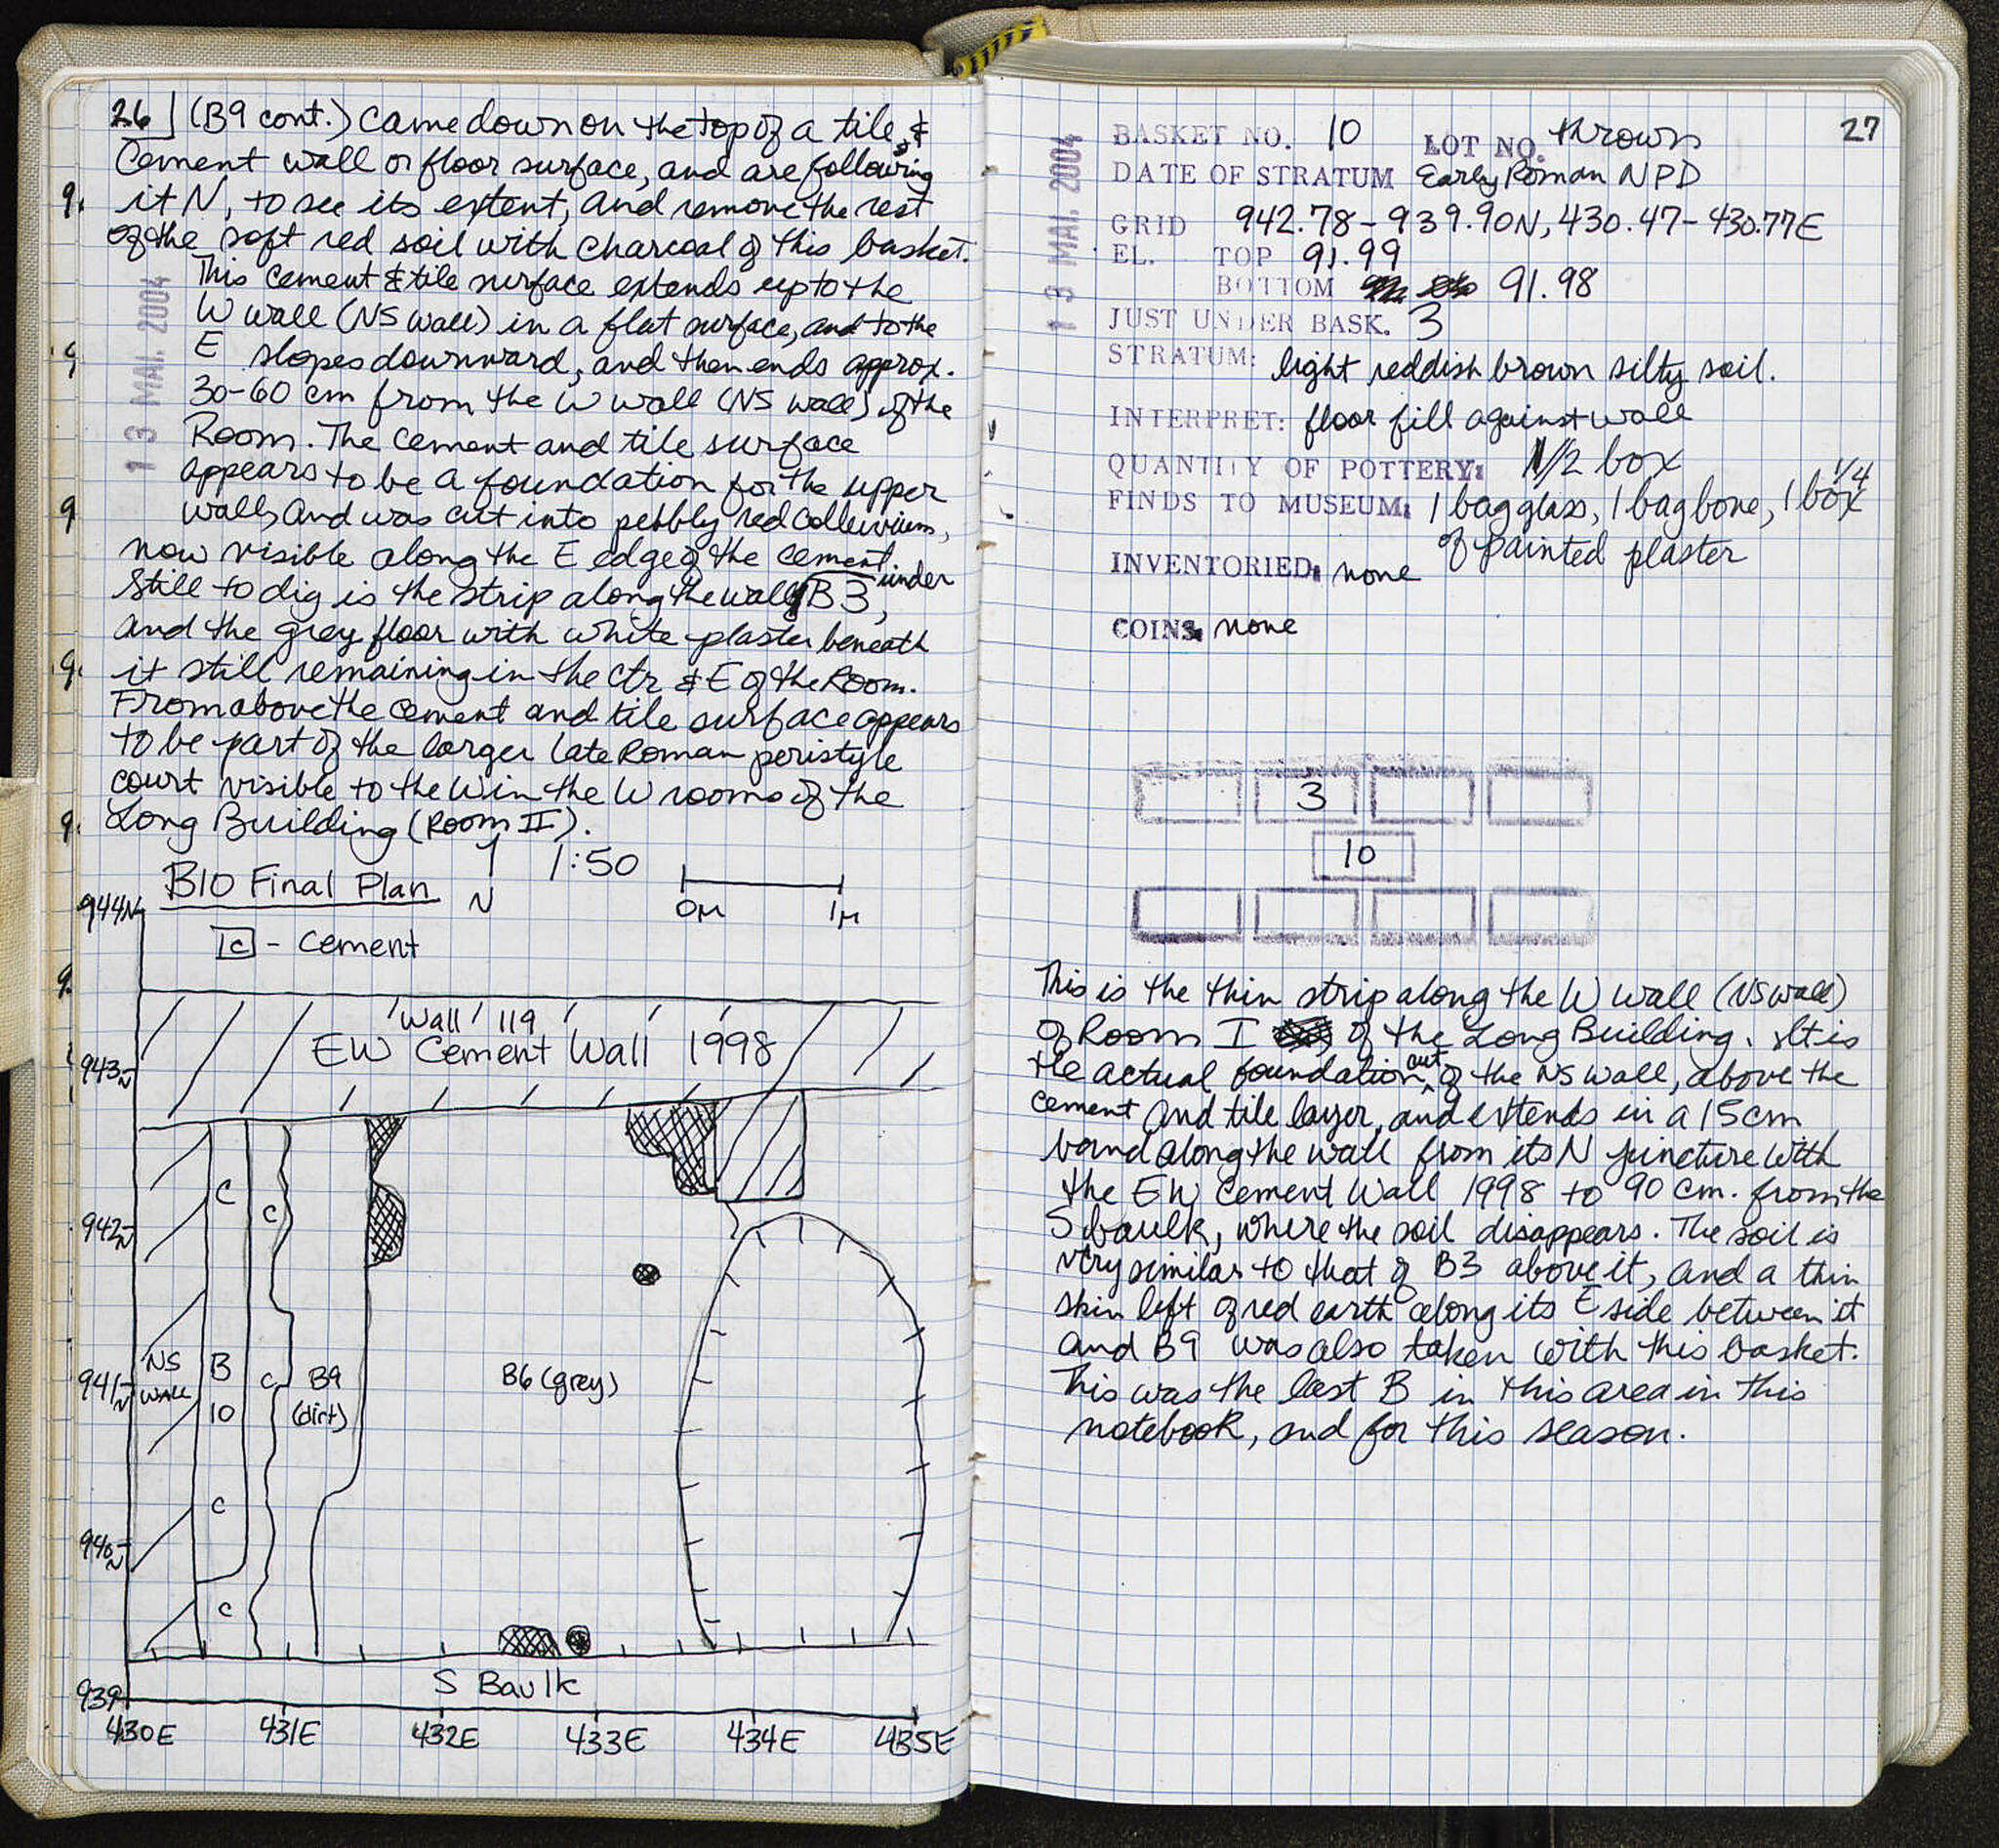 26 (B9 cont.) came down on the top of a tile &
cement wall or floor surface, and are following
it N, to see its extent, and remove the rest
of the soft red soil with charcoal of this basket.
13 MAI. 2004
This cement & tile surface extends up to the
W wall (NS wall) in a flat surface, and to the
E slopes downward, and then ends approx.
30-60 cm from the W wall (NS wall) of the
Room. The cement and tile surface
appears to be a foundation for the upper
wall, and was cut into pebbly red colluvium,
now visible along the E edge of the cement.
Still to dig is the strip along the wall under B3,
and the grey floor with white plaster beneath
it still remaining in the ctr & E of the Room.
From above the cement and tile surface appears
to be part of the larger late Roman peristyle
court visible to the W in the W rooms of the
Long Building (Room II).
B10 Final Plan N 1:50 0M 1M
C - Cement
944N
Wall 119
EW Cement Wall 1998
943N
C
C
942N
NS Wall
B 10
C
B9 (dirt)
B6 (grey)
941N
C
940N
C
S Baulk
939
430E 431E 432E 433E 434E 435E
27
13 MAI. 2004
BASKET NO. 10 LOT NO. thrown
DATE OF STRATUM Early Roman NPD
GRID 942.78-939.90N, 430.47-430.77E
EL. TOP 91.99
BOTTOM 91.98
JUST UNDER BASK. 3
STRATUM: light reddish brown silty soil.
INTERPRET: floor fill against wall
QUANTITY OF POTTERY: 1/2 box
FINDS TO MUSEUM: 1 bag glass, 1 bag bone, 1 1/4 box
of painted plaster
INVENTORIED: none
COINS: none
3
10
This is the thin strip along the W wall (NS wall)
of Room I of the Long Building. It is
the actual foundation cut of the NS wall, above the
cement and tile layer, and extends in a 15cm
band along the wall from its N juncture with
the EW Cement Wall 1998 to 90 cm. from the
S baulk, where the soil disappears. The soil is
very similar to that of B3 above it, and a thin
skin left of red earth along its E side between it
and B9 was also taken with this basket.
This was the last B in this area in this
notebook, and for this season.